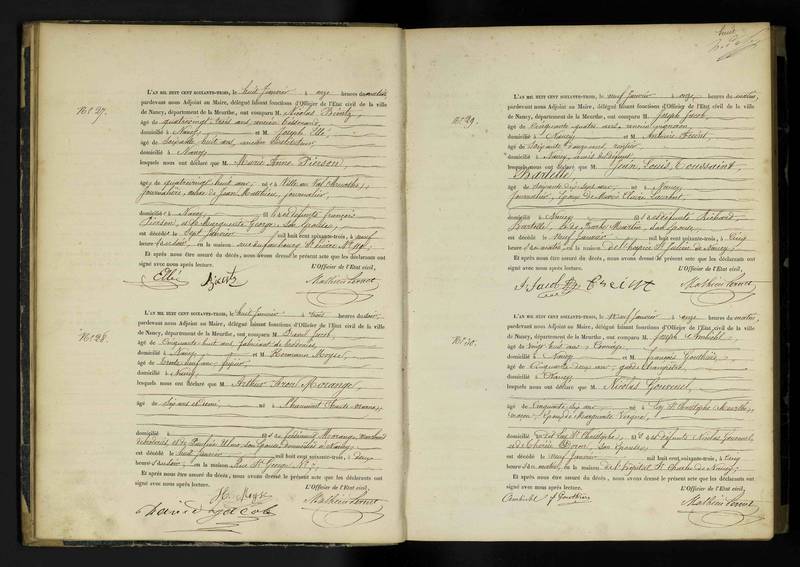 N° 27.
L'AN MIL HUIT CENT SOIXANTE-TROIS, le huit Janvier à onze heures du matin,
pardevant nous Adjoint au Maire, délégué faisant fonctions d'Officier de l'Etat civil de la ville
de Nancy, département de la Meurthe, ont comparu M. Nicolas
âgé de quatrevingt trois ans, ancien
domicilié à Nancy, et M. Joseph Ellé,
âgé de soixante huit ans, ancien
domicilié à Nancy,
lesquels nous ont déclaré que M. Marie Anne Pierson,
âgé de quatrevingt huit ans, né à Ville au Val (Meurthe),
journalière, veuve de Jean Matthieu, journalier,
domicilié à Nancy, fils de défunts François
Pierson, et de Marguerite George, son épouse,
est décédé le Sept Janvier mil huit cent soixante-trois, à neuf
heures du soir, en la maison rue du faubourg St Pierre N°
Et après nous être assuré du décès, nous avons dressé le présent acte que les déclarants ont
signé avec nous après lecture. L'Officier de l'Etat civil,
Ellé
N° 28.
L'AN MIL HUIT CENT SOIXANTE-TROIS, le huit Janvier à trois heures du soir,
pardevant nous Adjoint au Maire, délégué faisant fonctions d'Officier de l'Etat civil de la ville
de Nancy, département de la Meurthe, ont comparu M. David Jacob,
âgé de Cinquante huit ans, fabricant de
domicilié à Nancy, et M. Hermann Moyse,
âgé de trente huit ans, fripier,
domicilié à Nancy,
lesquels nous ont déclaré que M. Arthur Morange,
âgé de Six ans et demi, né à Chaumont (haute marne),
domicilié à fils de Ferdinand Morange, marchand
et de Pauline son épouse, domiciliés à Nancy,
est décédé le huit Janvier mil huit cent soixante-trois, à deux
heures du soir, en la maison Rue St George N° 7,
Et après nous être assuré du décès, nous avons dressé le présent acte que les déclarants ont
signé avec nous après lecture. L'Officier de l'Etat civil,
H. Moyse
David Jacob
huit
N° 29.
L'AN MIL HUIT CENT SOIXANTE-TROIS, le neuf Janvier à onze heures du matin,
pardevant nous Adjoint au Maire, délégué faisant fonctions d'Officier de l'Etat civil de la ville
de Nancy, département de la Meurthe, ont comparu M. Joseph Jacob,
âgé de Cinquante quatre ans, ancien
domicilié à Nancy et M. Antoine
âgé de Soixante
domicilié à Nancy, amis du défunt,
lesquels nous ont déclaré que M. Jean Louis Toussaint
Bartelle,
âgé de Soixante dix sept ans, né à Nancy,
journalier, époux de Marie Claire
domicilié à Nancy, fils de défunts Richard
Bartelle, et de Barbe Martin, son épouse,
est décédé le neuf Janvier mil huit cent soixante-trois, à Cinq
heures du matin, en la maison de l'hospice St Julien de Nancy,
Et après nous être assuré du décès, nous avons dressé le présent acte que les déclarants ont
signé avec nous après lecture. L'Officier de l'Etat civil,
J Jacob
N° 30.
L'AN MIL HUIT CENT SOIXANTE-TROIS, le neuf Janvier à onze heures du matin,
pardevant nous Adjoint au Maire, délégué faisant fonctions d'Officier de l'Etat civil de la ville
de Nancy, département de la Meurthe, ont comparu M. Joseph
âgé de vingt huit ans,
domicilié à Nancy et M. François Gouthier,
âgé de Cinquante deux ans, garde champêtre,
domicilié à Nancy,
lesquels nous ont déclaré que M. Nicolas Gouvenel,
âgé de Cinquante six ans né à Ley St Christophe (Meurthe),
maçon, époux de Marguerite
domicilié audit Ley St Christophe, fils de défunts Nicolas Gouvenel,
et de Thérèse son épouse,
est décédé le neuf Janvier mil huit cent soixante-trois, à Cinq
heures du matin, en la maison de l'hôpital St Charles de Nancy,
Et après nous être assuré du décès, nous avons dressé le présent acte que les déclarants ont
signé avec nous après lecture. L'Officier de l'Etat civil,
f Gouthier